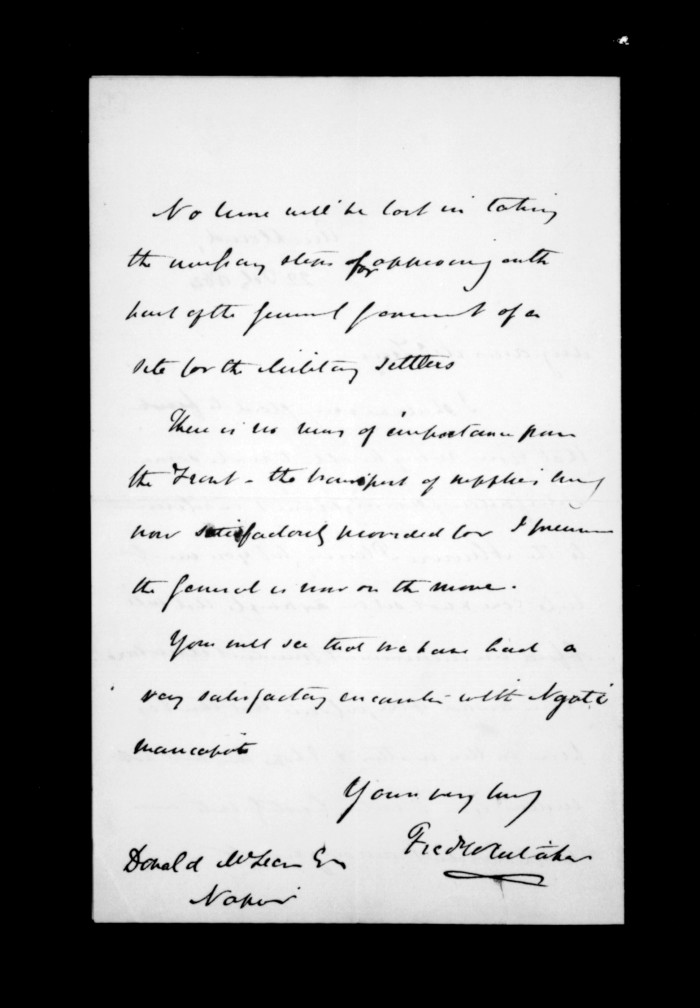 No time will be lost in taking
the necessary steps for approving on the
part of the General Government of a
site for the Military Settlers
There is no news of importance from
the Front - the transport of supplies being
now satisfactorily provided for I presume
the General is now on the move.
You will see that we have had a
very satisfactory encounter with Ngati
maniapoto
Yours very truly
Fred Whitaker
Donald McLean Esq
Napier